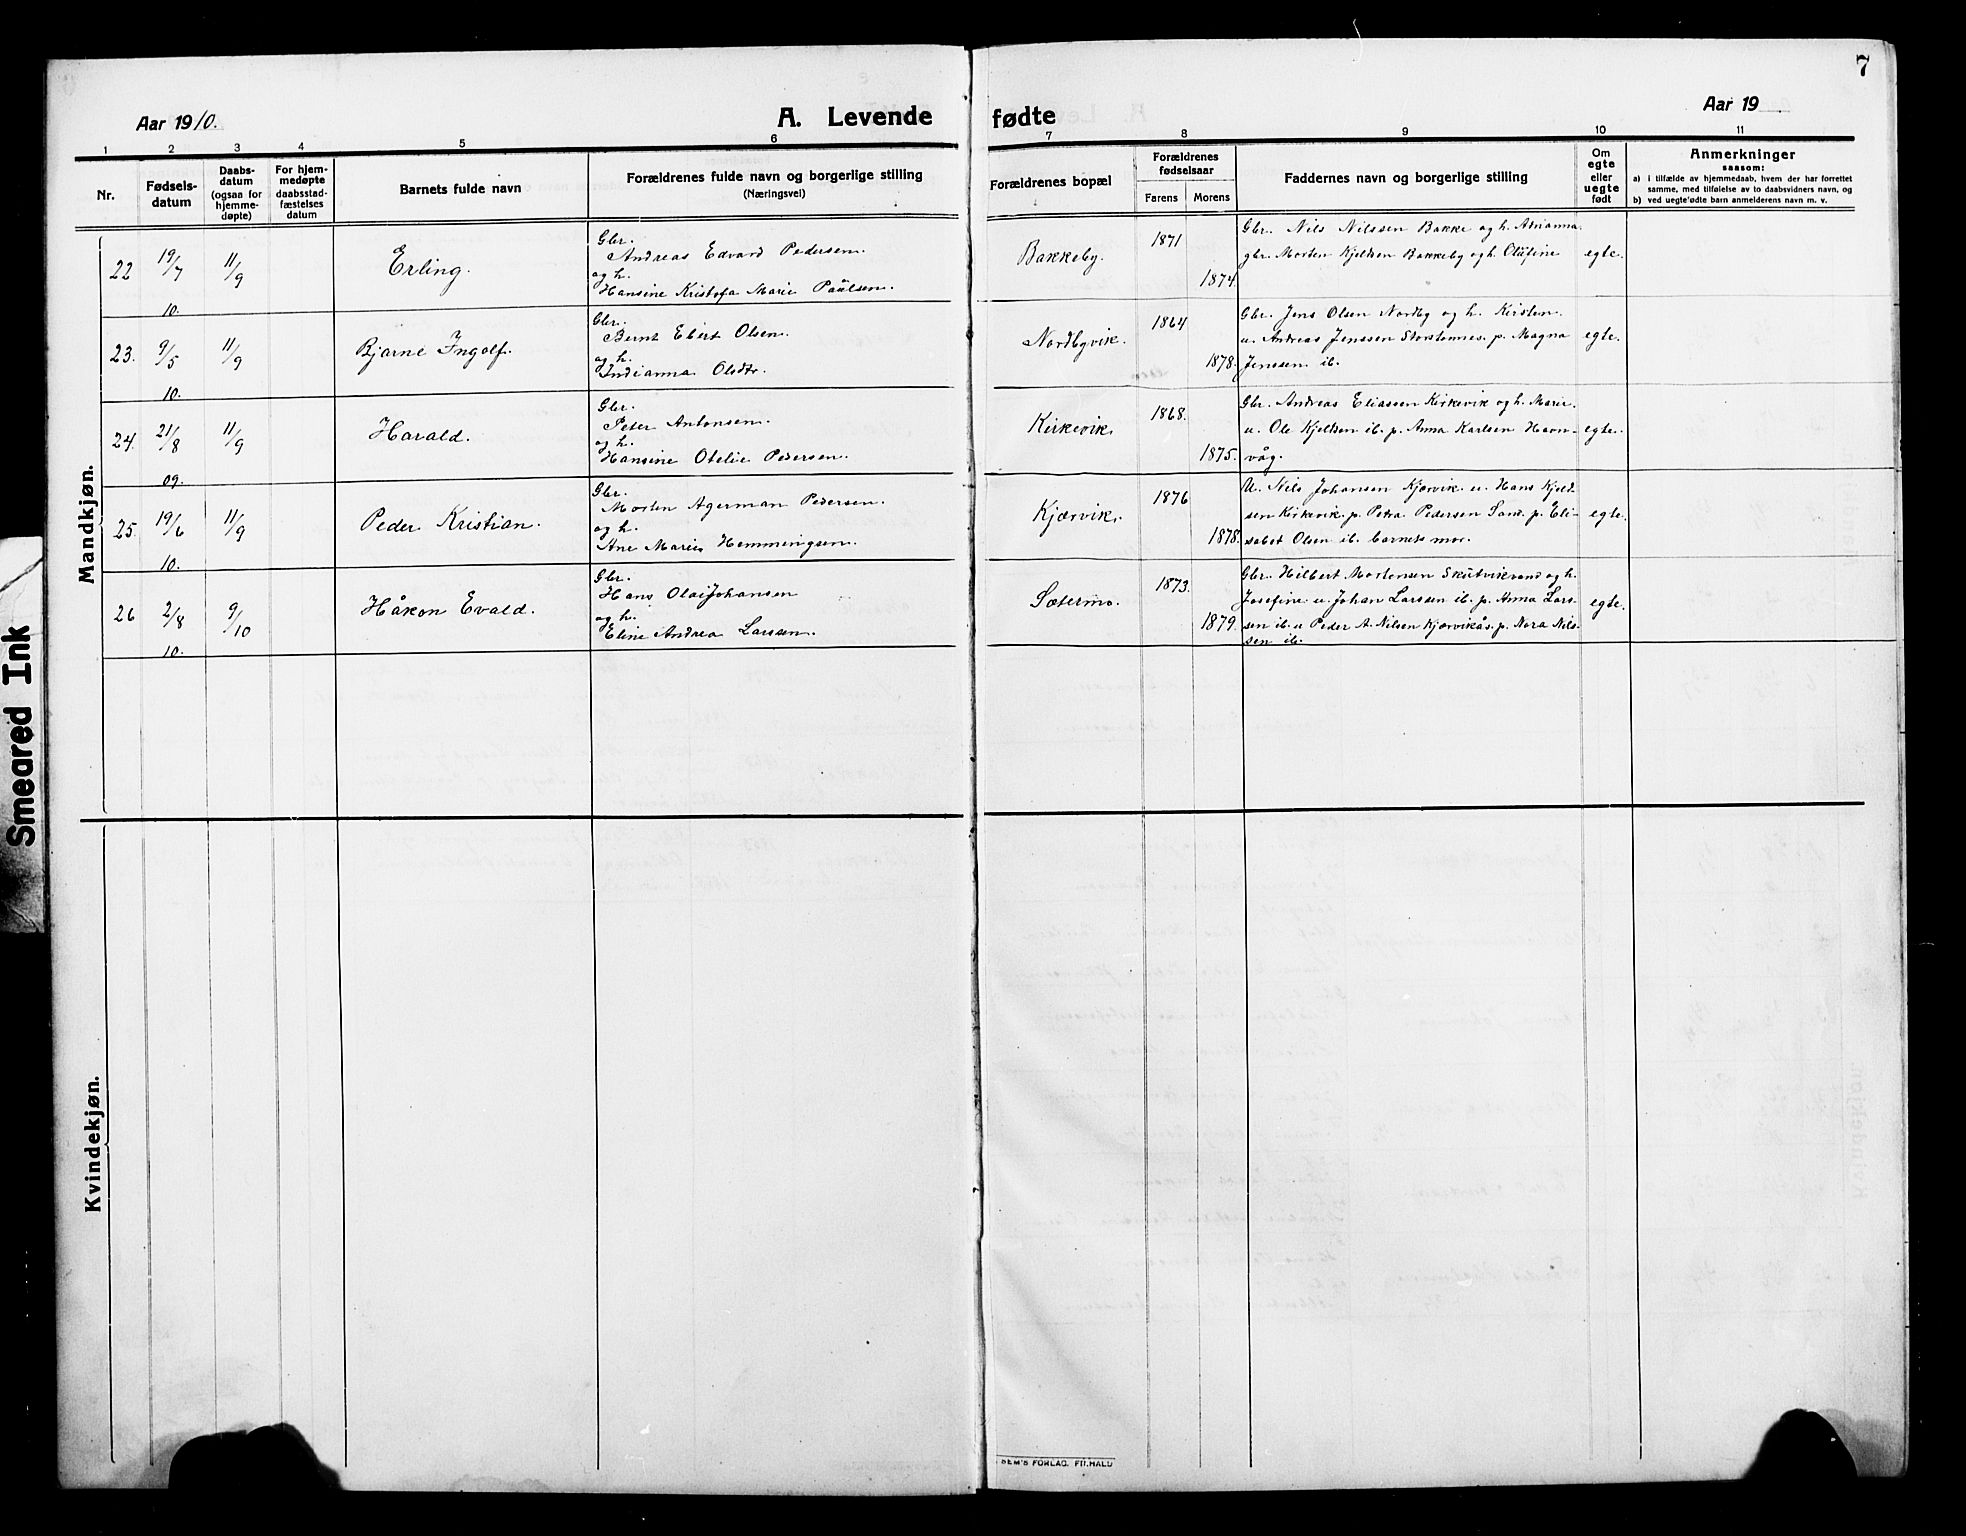 7
Aar 1910.
A. Levende fødte
Aar 19
1 2 3 4 5 6 7 8 9 10 11
Nr.
Fødsels-
datum
Daabs-
datum
(ogsaa for
hjemme-
døpte)
For hjem-
medøpte
daabsstad-
fæstelses
datum
Barnets fulde navn
Forældrenes fulde navn og borgerlige stilling
(Næringsvei)
Forældrenes bopæl
Forældrenes
fødselsaar
Farens Morens
Faddernes navn og borgerlige stilling
Om
egte
eller
uegte
født
Anmerkninger
saasom:
a) i tilfælde av hjemmedaab, hvem der har forrettet
samme, med tilføielse av to daabsvidners navn, og
b) ved uegtefødte barn anmelderens navn m. v.
Mandkjøn.
22 19/7 11/9 Erling.
10.
Gbr.
Andreas Edvard Pedersen
og h.
Hansine Kristofa Marie Paulsen.
Bakkeby.
1871
1874.
Gbr. Nils Nilssen Bakke og h. Arianna
gbr. Morten Kjeldsen Bakkeby og h. Olufine
egte.
23. 9/5 11/9 Bjarne Ingolf.
10.
Gbr.
Bernt Ebert Olsen.
og h.
Indianna Olsdtr.
Nordbyvik.
1864
1878.
Gbr. Jens Olsen Nordby og h. Kirsten.
u. Andreas Jenssen Storstennes. p. Magna
Jenssen ib.
egte.
24. 21/8 11/9 Harald.
09.
Gbr.
Peter Antonsen.
og h.
Hansine Otelie Pedersen.
Kirkevik.
1868.
1875.
Gbr. Andreas Eliassen Kirkevik og h. Marie.
u. Ole Kjeldsen ib. p. Anna Karlsen Havn-
våg.
egte.
25. 19/6 11/9 Peder Kristian.
10.
Gbr.
Morten Agerman Pedersen.
og h.
Ane Marie Hemmingsen.
Kjærvik.
1876
1878.
U. Nils Johansen Kjærvik. u. Hans Kjeld-
sen Kirkevik. p. Petra Pedersen Sand. p. Eli-
sabet Olsen ib. barnets mor.
egte.
26 2/8 9/10 Håkon Evald.
10.
Gbr.
Hans Olai Johansen
og h.
Eline Andrea Larssen.
Sætermo.
1873.
1879.
Gbr. Hilbert Mortensen Skutvikvand og h.
Josefine u. Johan Larssen ib. p. Anna Lars-
sen ib. u Peder A. Nilsen Kjærvikås. p. Nora Nils-
sen ib.
egte.
Kvindekjøn.
SEM'S FORLAG. FR.HALD
Smeared Ink